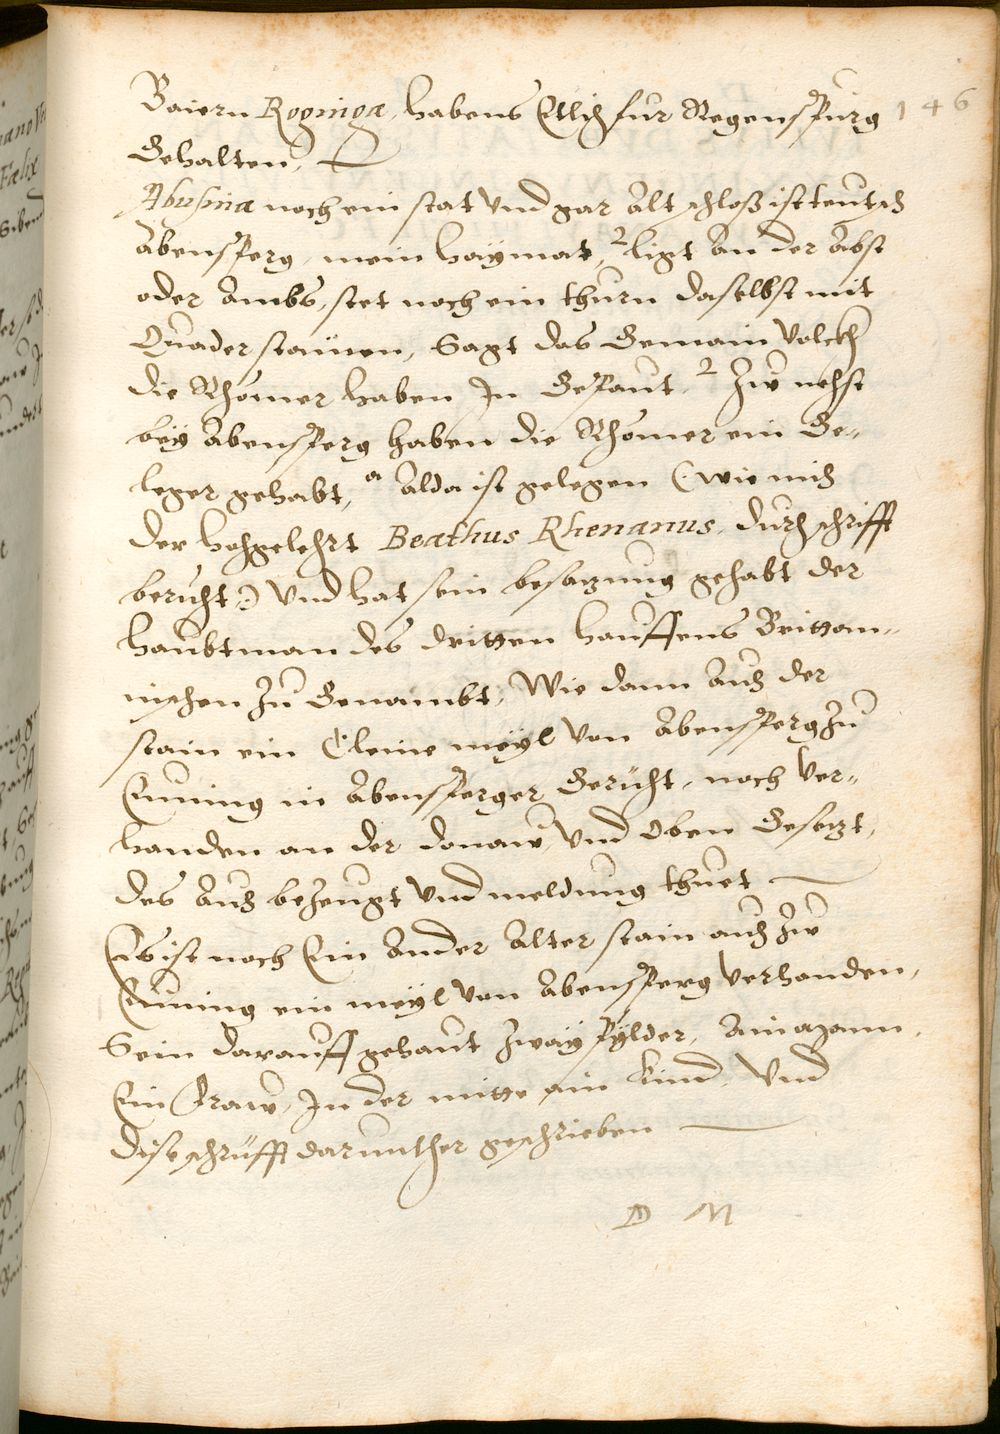 Baiern Roginga, habens Etlich fur Regenspurg 146
Gehalten,
Abusina noch ein stat Vnd gar Alt schloß ist teutsch
Abensperg, mein haymat, 2 ligt An der Abst
oder Ambs, stet noch ein thurn daselbst mit
Quader stainen, Sagt das Gemain Volckh
die Rhömer haben In Gepaut. 2 Zw nehst
bey Abensperg haben die Rhömer ein Ge„
leger gehabt, a Alda ist gelegen (: wie mich
der hochgelehrt Beathus Rhenanus, durch schrifft
bericht:) Vnd hat sein besazung gehabt der
haubtman des dritten hauffens Brittan„
nischen Zu Genambt, Wie dann Auch der
stain ein Cleine meyl von Abensperg Zu
Eining in Abensperger Gericht, noch Ver„
handen an der donaw, Vnd Oben Gesezt,
des Auch bezeugt Vnd meldung thuet
Es ist noch Ein Ander Alter stain auch Zw
Eining ein meyl von Abensperg Verhanden,
Sein darauff gehaut Zway pylder, Ain
Ein Fraw, In der mitte ain Kind, Vnd
dise schrüfft darunther geschrieben
D M